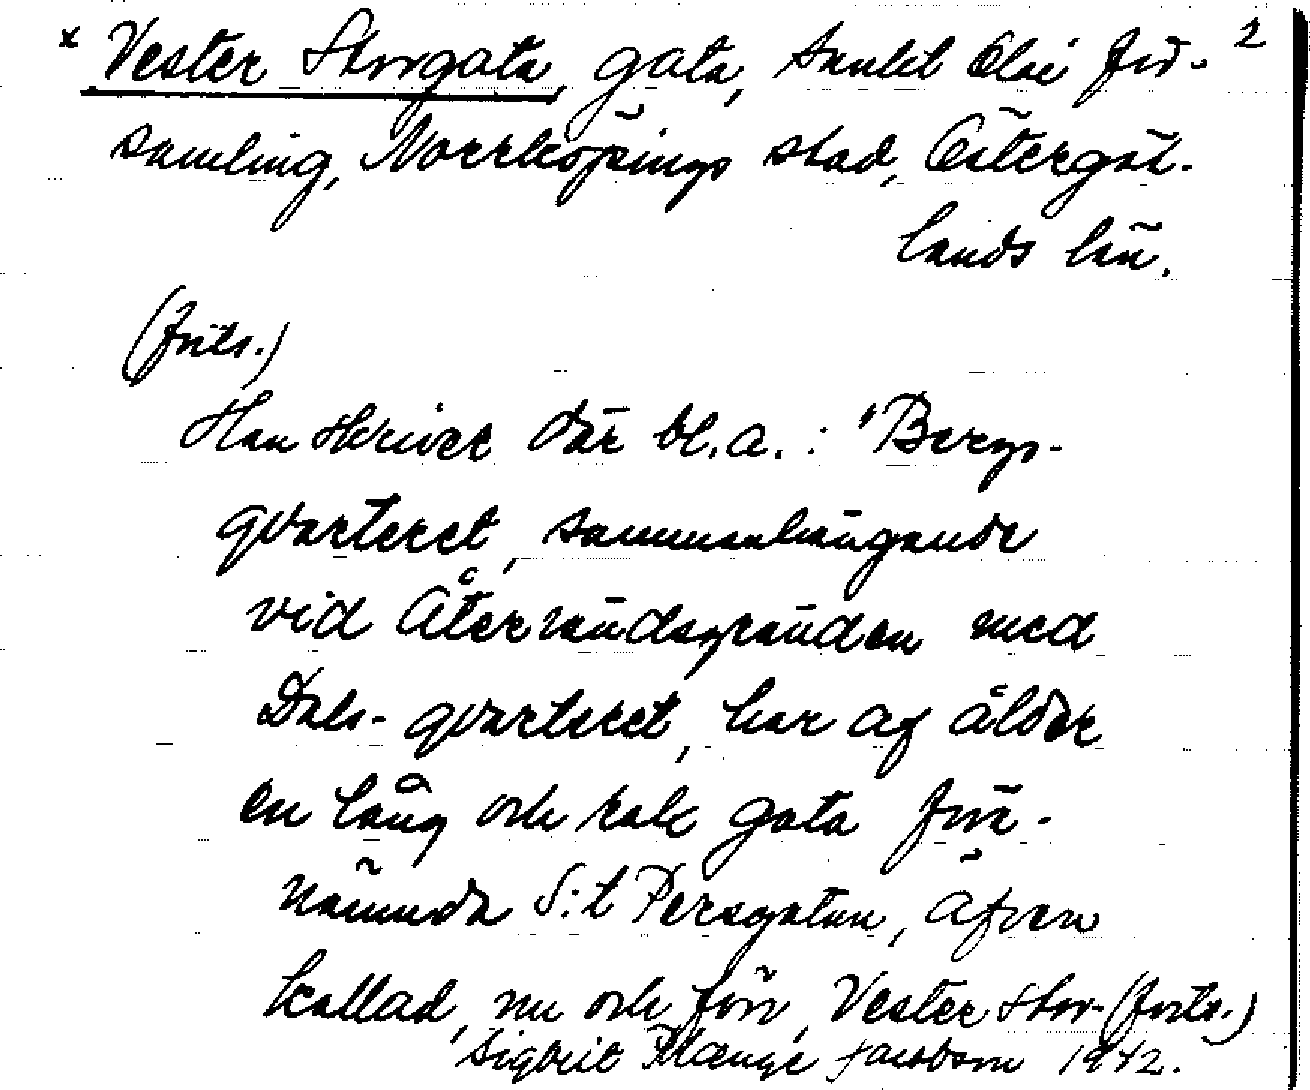 x Vester Storgata, gata, Sankt Olai för- 2
samling, Norrköpings stad, Östergöt-
lands län.
(forts.)
Han skriver där bl.a.: "Bergs-
qvarteret, sammanhängande
vid Återvändsgränden med
Dals-qvarteret, har af ålder
en lång och rak gata för-
nämnda S:t Persgatan, äfven
kallad, nu och förr, Vester Stor- (forts.)
Sigbrit Plænge Jacobson 1942.